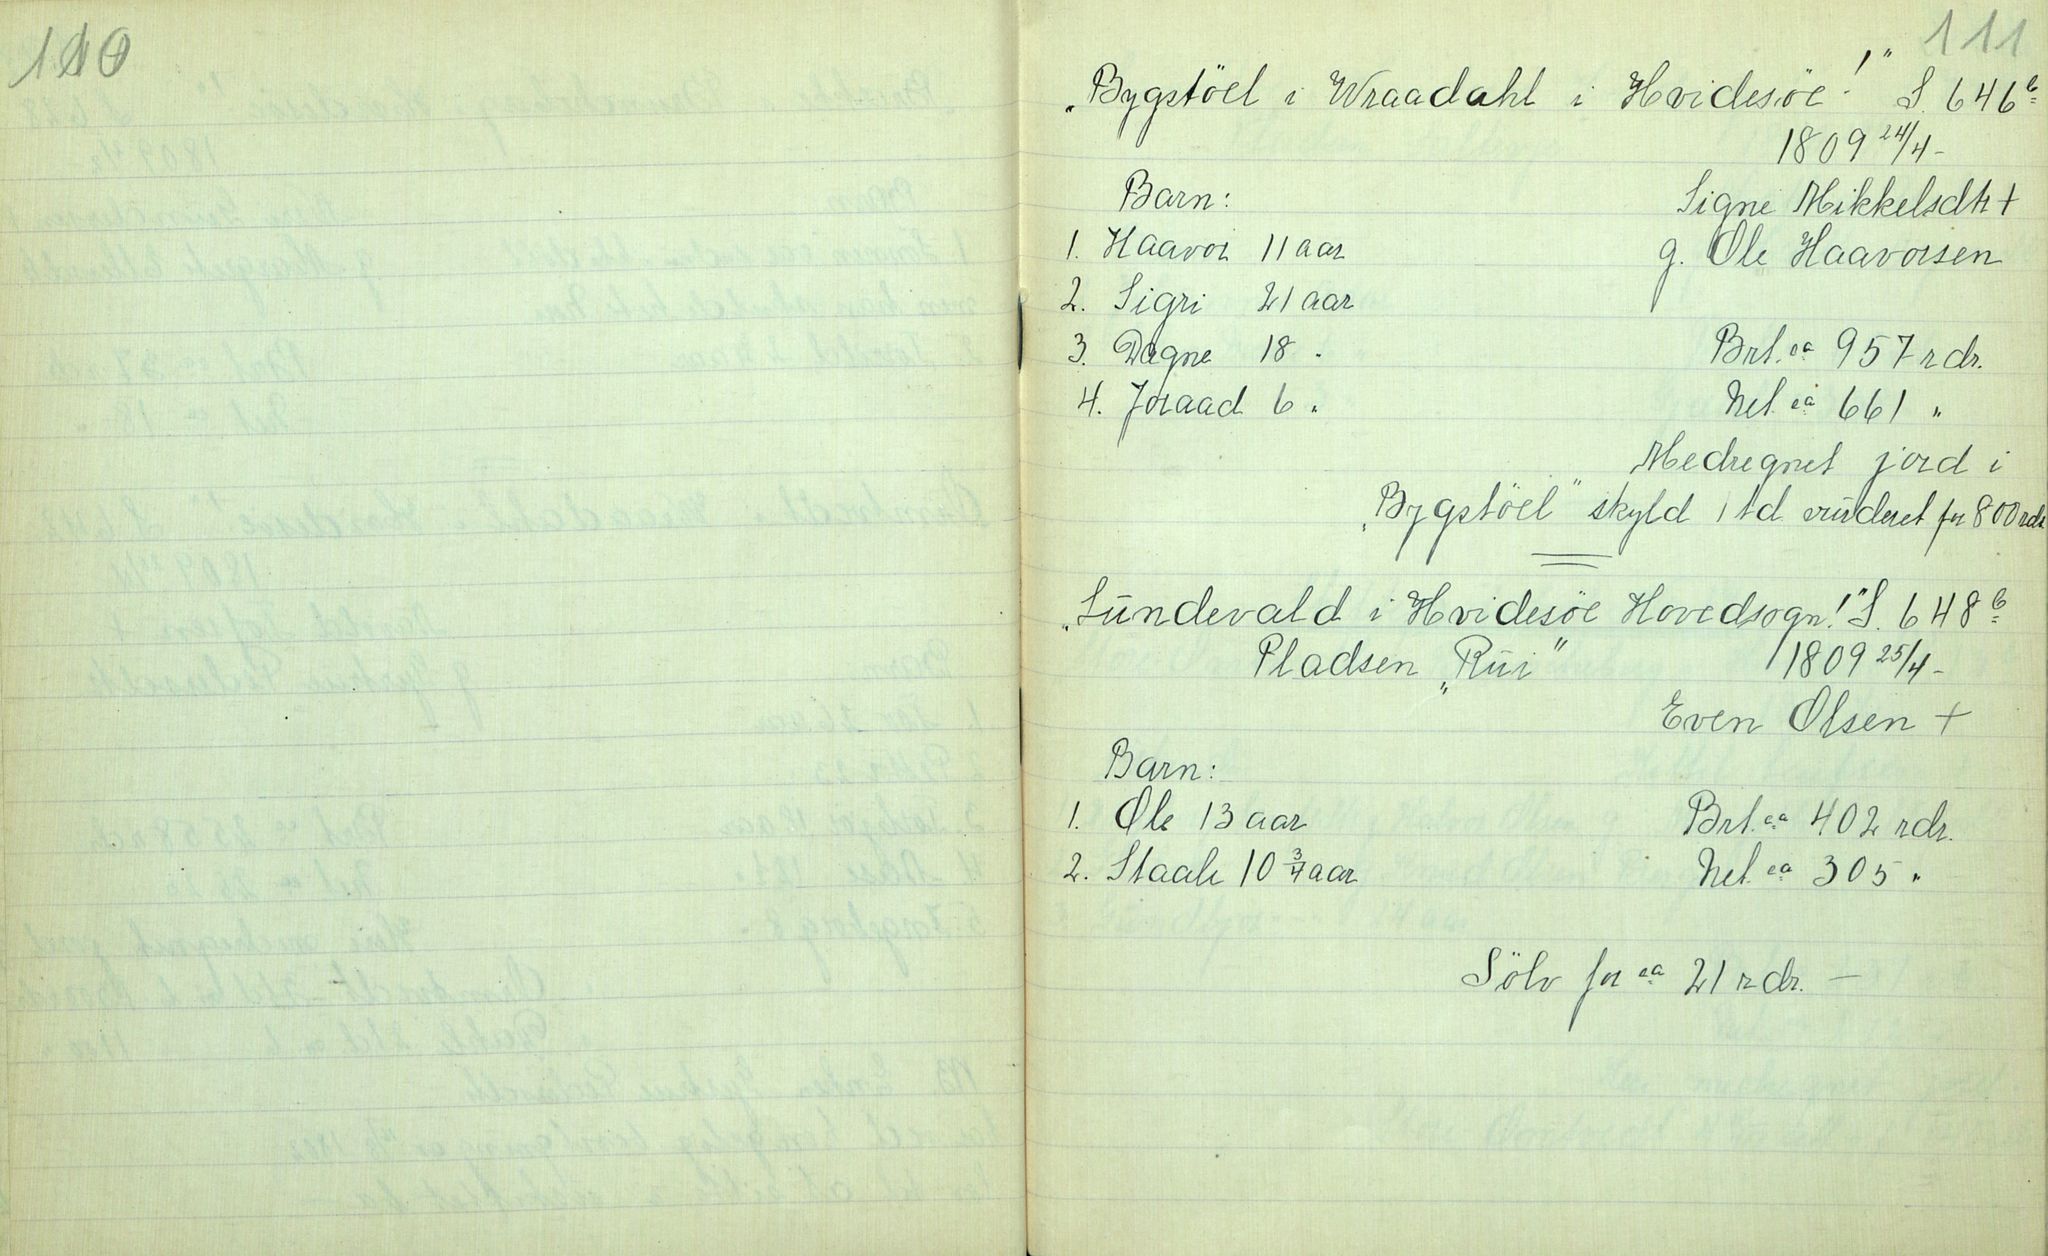 110
111
„Bygstöel i Wraadahl i Hvidesöe!" S. 646b
1809 24/4-
Barn:
Signe Mikkelsdtr +
1. Haavor 11 aar
g. Ole Haavorsen
2. Sigri 21 aar
3. Dagne 18 "
Brt. ca 957 rdr.
4. Joraad 6 "
Net. ca 661 "
Medregnet jord i
„Bygstöel" skyld 1 td vurderet for 800 rdr
„Sundevald i Hvidesöe Hovedsogn!" S. 648b
Pladsen „Rui"
1809 25/4-
Even Olsen +
Barn:
1. Ole 13 aar
Brt. ca 402 rdr.
2. Staale 10 3/4 aar
Net. ca 305 "
Sölv for ca 21 rdr. —